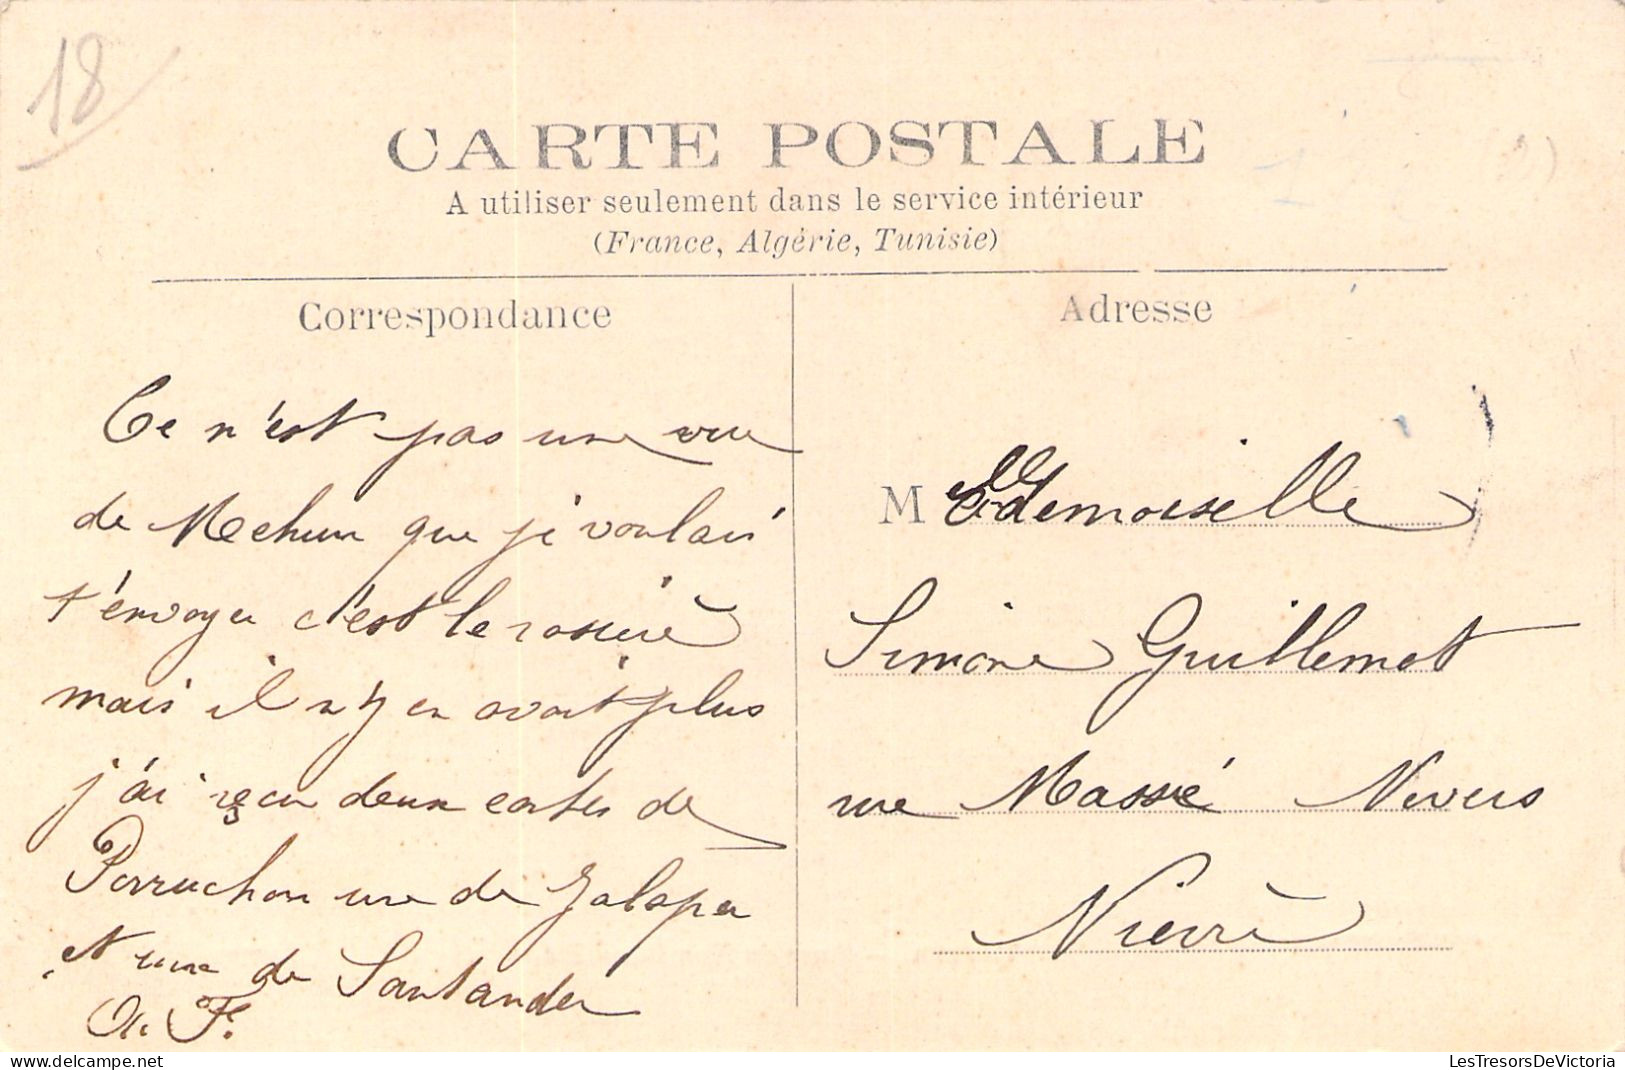 18
CARTE POSTALE
A utiliser seulement dans le service intérieur
(France, Algérie, Tunisie)
Correspondance
Ce n'est pas une vue
de Mehun que je voulais
t'envoyer c'est le rosière
mais il n'y en avait plus
j'ai reçu deux cartes de
Perruchon une de Jalapa
et une de Santander
A. F.
Adresse
M Mademoiselle
Simone Guillemot
rue Massé Nevers
Nièvre
delcampe.net
LesTresorsDeVictoria